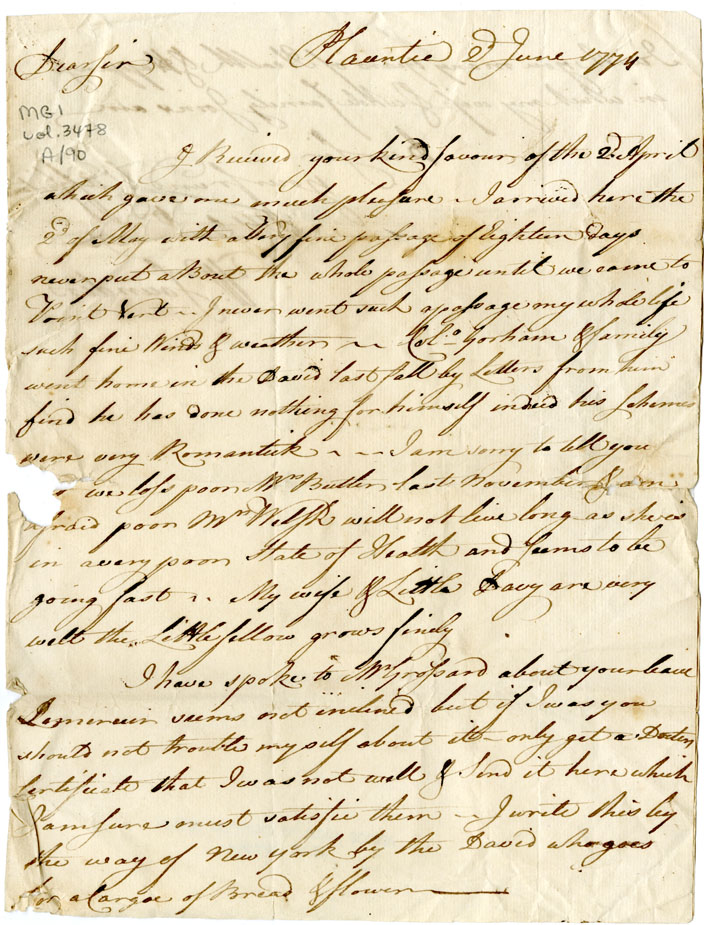 Dear Sir Placentie 2d June 1774
MG1
vol. 3478
A/90
I Recived your kind favour of the 2d April
which gave me much pleasure - I arrived here the
2d of May with a Very fine passage of Eighteen Days
never put about the whole passage until we came to
Point Vert - I never went such a passage my whole life
such fine Winds & weather - - Colo Gorham & family
went home in the David last fall by Letters from him
find he has done nothing for himself indeed his schemes
were very Romantick - - - I am sorry to tell you
we loss poor Mrs Butler last November & am
afraid poor Mrs Welsh will not live long as she is
in a very poor State of Health and seems to be
going fast - - My wife & Little Davy are very
well the Little fellow grows finely
I have spoke to Mr Grossard about your leave
seems not inclined but if I was you
should not trouble my self about it - only get a Docters
Certificate that I was not well & Send it here which
I am sure must satisfie them - I write this by
the way of New york by the David who goes
for a Cargoe of Bread & flower